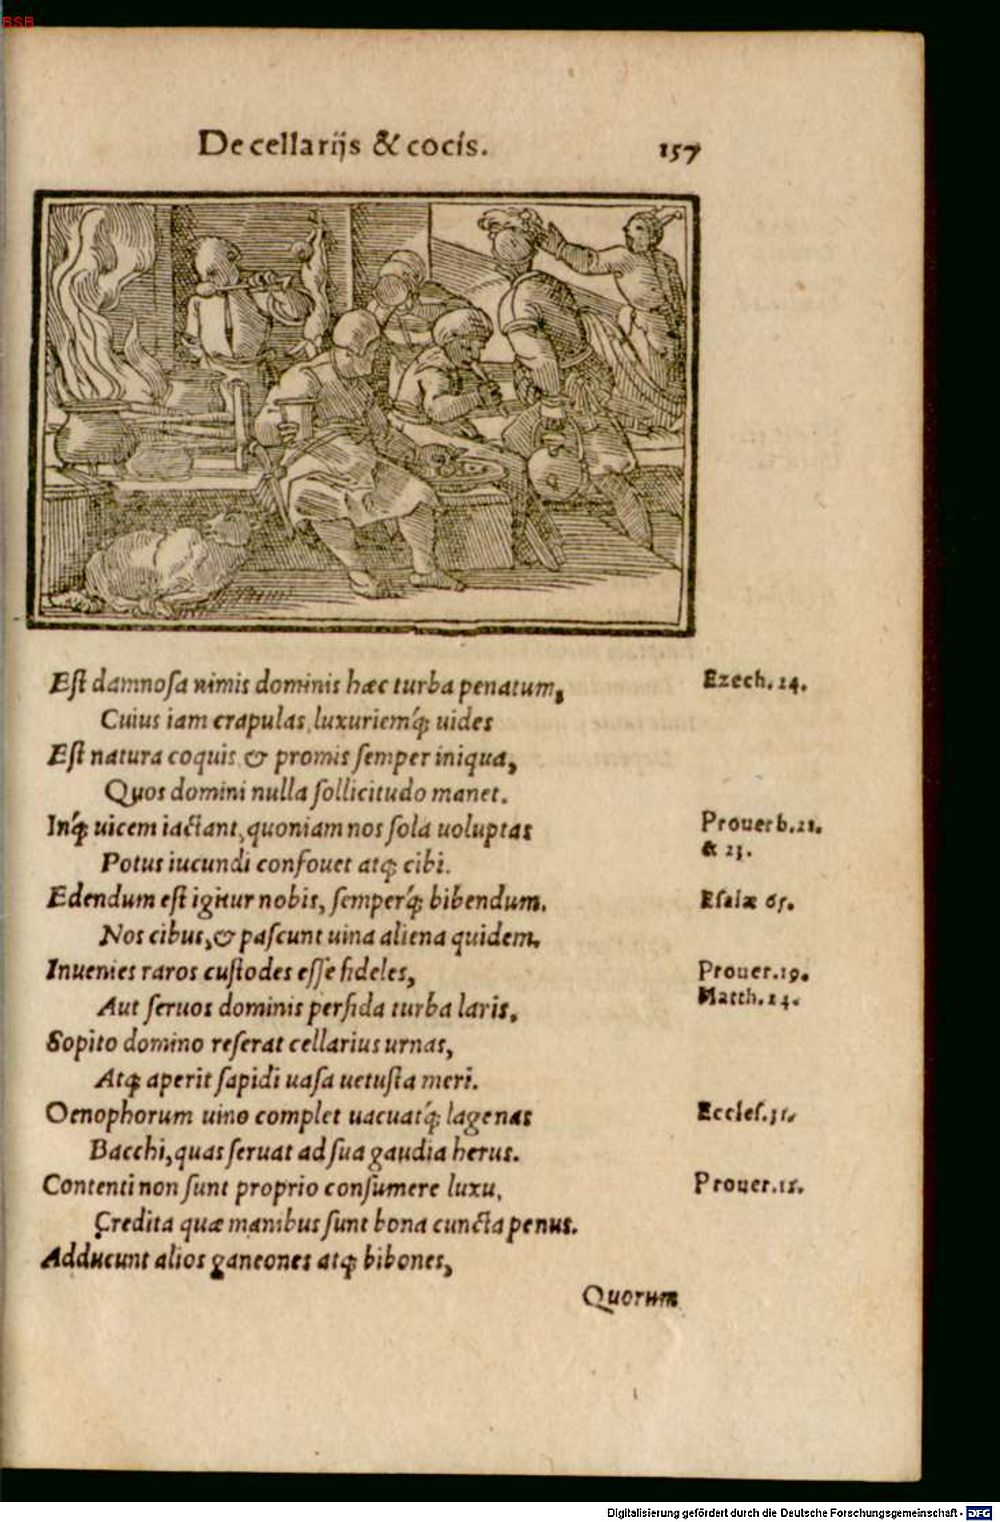 BSB
De cellarijs & cocis. 157
Est damnosa nimis dominis hæc turba penatum, Ezech. 24.
Cuius iam crapulas, luxuriemq́; uides
Est natura coquis & promis semper iniqua,
Quos domini nulla sollicitudo manet.
Inq́; uicem iactant, quoniam nos sola uoluptas Prouerb. 21.
& 23.
Potus iucundi confouet atq; cibi.
Edendum est igitur nobis, semperq́; bibendum. Esaiæ 65.
Nos cibus, & pascunt uina aliena quidem.
Inuenies raros custodes esse fideles, Prouer. 19.
Matth. 24.
Aut seruos dominis perfida turba laris.
Sopito domino reserat cellarius urnas,
Atq; aperit sapidi uasa uetusta meri.
Oenophorum uino complet uacuatq́; lagenas Eccles. 31.
Bacchi, quas seruat ad sua gaudia herus.
Contenti non sunt proprio consumere luxu, Prouer. 18.
Credita quæ manibus sunt bona cuncta penus.
Adducunt alios ganeones atq; bibones,
Quorum
Digitalisierung gefördert durch die Deutsche Forschungsgemeinschaft - DFG